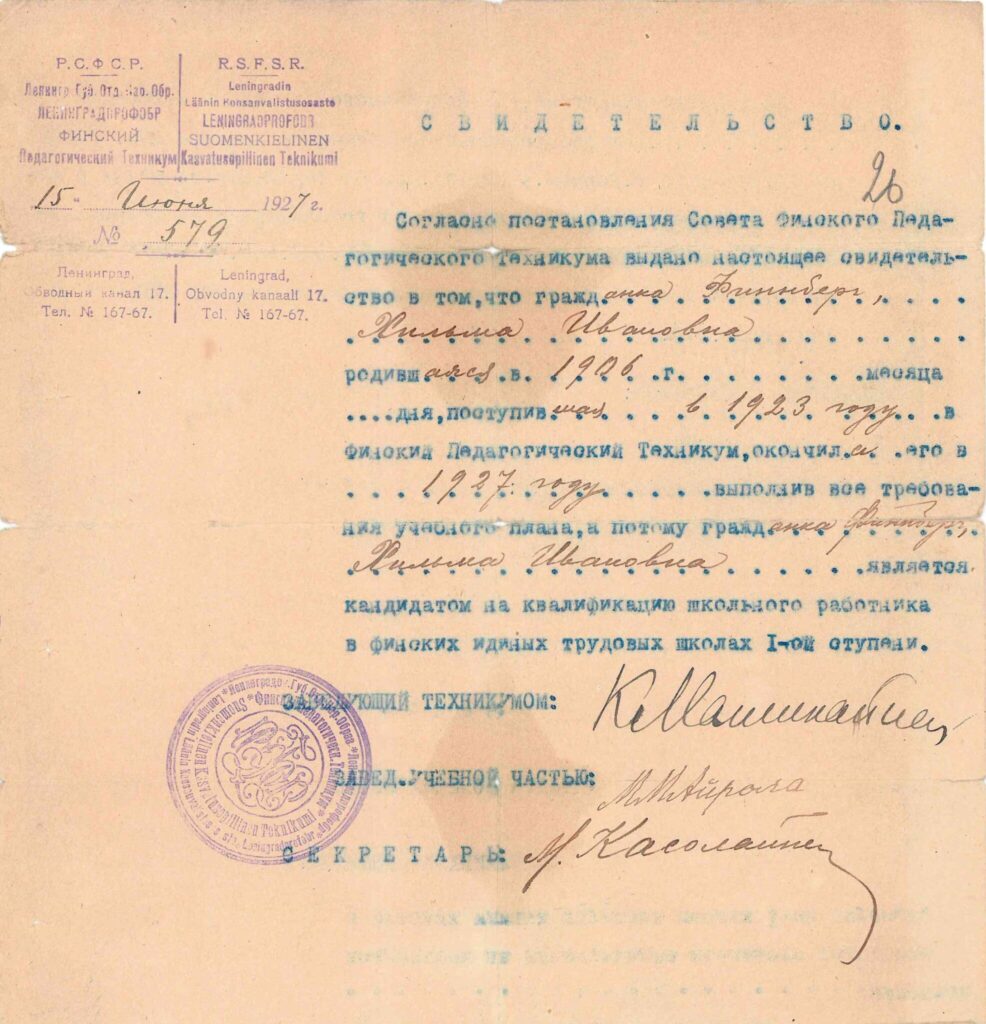 Р.С.Ф.С.Р.
Ленингр. Губ. Отд. Нао. Обр.
ЛЕНИНГРАДПРОФОБР
ФИНСКИЙ
Педагогический Техникум
R.S.F.S.R.
Leningradin
Läänin Kansanvalistusosasto
LENINGRADPROFOBR
SUOMENKIELINEN
Kasvatusopillinen Teknikumi
15 " Июня 1927 г.
№ 579
Ленинград,
Обводный канал 17.
Тел. № 167-67.
Leningrad,
Obvodny kanaali 17.
Tel. № 167-67.
СВИДЕТЕЛЬСТВО.
26
Согласно постановления Совета Финского Педа-
гогического Техникума выдано настоящее свидетель-
ство в том, что гражданка Финнберг,
Хильма Ивановна
родившаяся в 1906 г. месяца
....дня, поступившая в 1923 году в
Финский Педагогический Техникум, окончила его в
1927 году выполнив все требова-
ния учебного плана, а потому гражданка Финнберг,
Хильма Ивановна является
кандидатом на квалификацию школьного работника
в финских идиных трудовых школах I-ой ступени.
ЗАВЕДУЮЩИЙ ТЕХНИКУМОМ:
ЗАВЕД. УЧЕБНОЙ ЧАСТЬЮ: М.М.Айрола
СЕКРЕТАРЬ: М. Касолайнен
Suomenkielinen Kasvatusopillinen Teknikumi